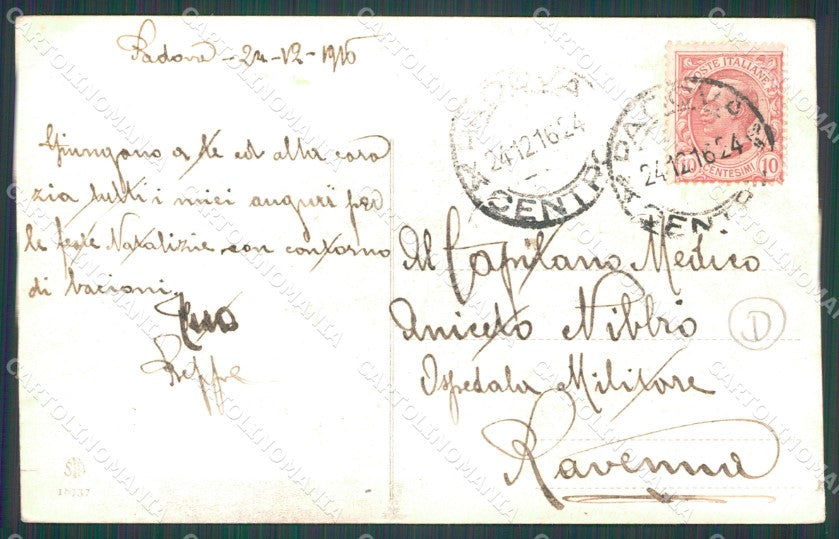 Padova - 24-12-1916
Giungano a te ed alla cara
zia tutti i miei auguri per
le feste Natalizie con contorno
di bacioni.
Tuo
Beppe
PADOVA
24.12.16.24
CENTR
PADOVA
24.12.16.24
CENTR
POSTE ITALIANE
10 CENTESIMI 10
Al Capitano Medico
Aniceto Nibbio
Ospedale Militare
Ravenna
D
CARTOLINOMANIA